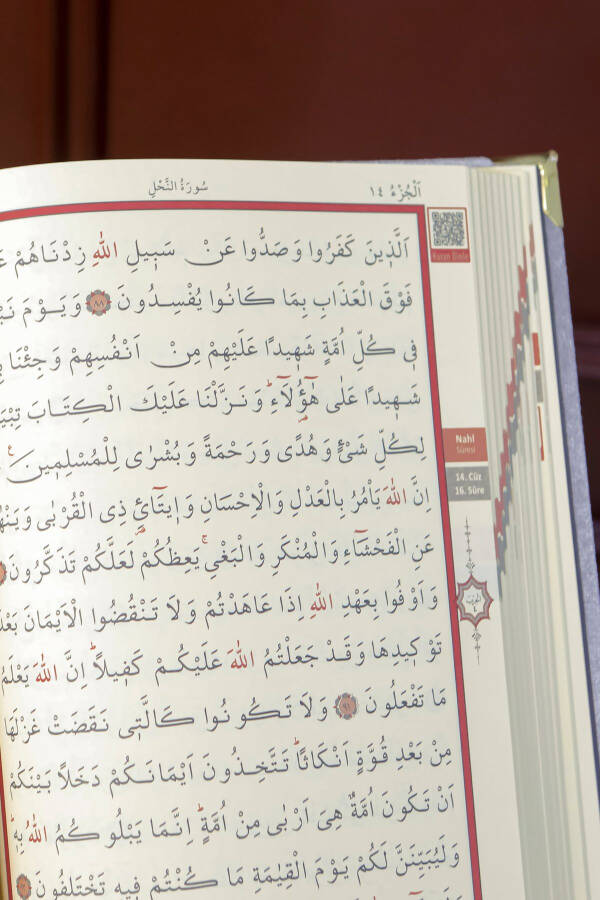 سُورَةُ النَّحْلِ
اَلْجُزْءُ ١٤
اَلَّذ۪ينَ كَفَرُوا وَصَدُّوا عَنْ سَب۪يلِ اللّٰهِ زِدْنَاهُمْ
فَوْقَ الْعَذَابِ بِمَا كَانُوا يُفْسِدُونَ ﴿٨٨﴾ وَيَوْمَ
ف۪ي كُلِّ اُمَّةٍ شَه۪يدًا عَلَيْهِمْ مِنْ اَنْفُسِهِمْ وَجِئْنَا
شَه۪يدًا عَلٰى هٰٓؤُ۬لَٓاءِۜ وَنَزَّلْنَا عَلَيْكَ الْكِتَابَ
لِكُلِّ شَيْءٍ وَهُدًى وَرَحْمَةً وَبُشْرٰى لِلْمُسْلِم۪ينَ
اِنَّ اللّٰهَ يَأْمُرُ بِالْعَدْلِ وَالْاِحْسَانِ وَا۪يتَٓائِ ذِي الْقُرْبٰى
عَنِ الْفَحْشَٓاءِ وَالْمُنْكَرِ وَالْبَغْيِۚ يَعِظُكُمْ لَعَلَّكُمْ تَذَكَّرُونَ
وَاَوْفُوا بِعَهْدِ اللّٰهِ اِذَا عَاهَدْتُمْ وَلَا تَنْقُضُوا الْاَيْمَانَ
تَوْك۪يدِهَا وَقَدْ جَعَلْتُمُ اللّٰهَ عَلَيْكُمْ كَف۪يلًاۜ اِنَّ اللّٰهَ يَعْلَمُ
مَا تَفْعَلُونَ ﴿٩١﴾ وَلَا تَكُونُوا كَالَّت۪ي نَقَضَتْ غَزْلَهَا
مِنْ بَعْدِ قُوَّةٍ اَنْكَاثًاۜ تَتَّخِذُونَ اَيْمَانَكُمْ دَخَلًا بَيْنَكُمْ
اَنْ تَكُونَ اُمَّةٌ هِيَ اَرْبٰى مِنْ اُمَّةٍۜ اِنَّمَا يَبْلُوكُمُ اللّٰهُ بِه۪ۜ
وَلَيُبَيِّنَنَّ لَكُمْ يَوْمَ الْقِيٰمَةِ مَا كُنْتُمْ ف۪يهِ تَخْتَلِفُونَ
Nahl
Sûresi
14. Cüz
16. Sûre